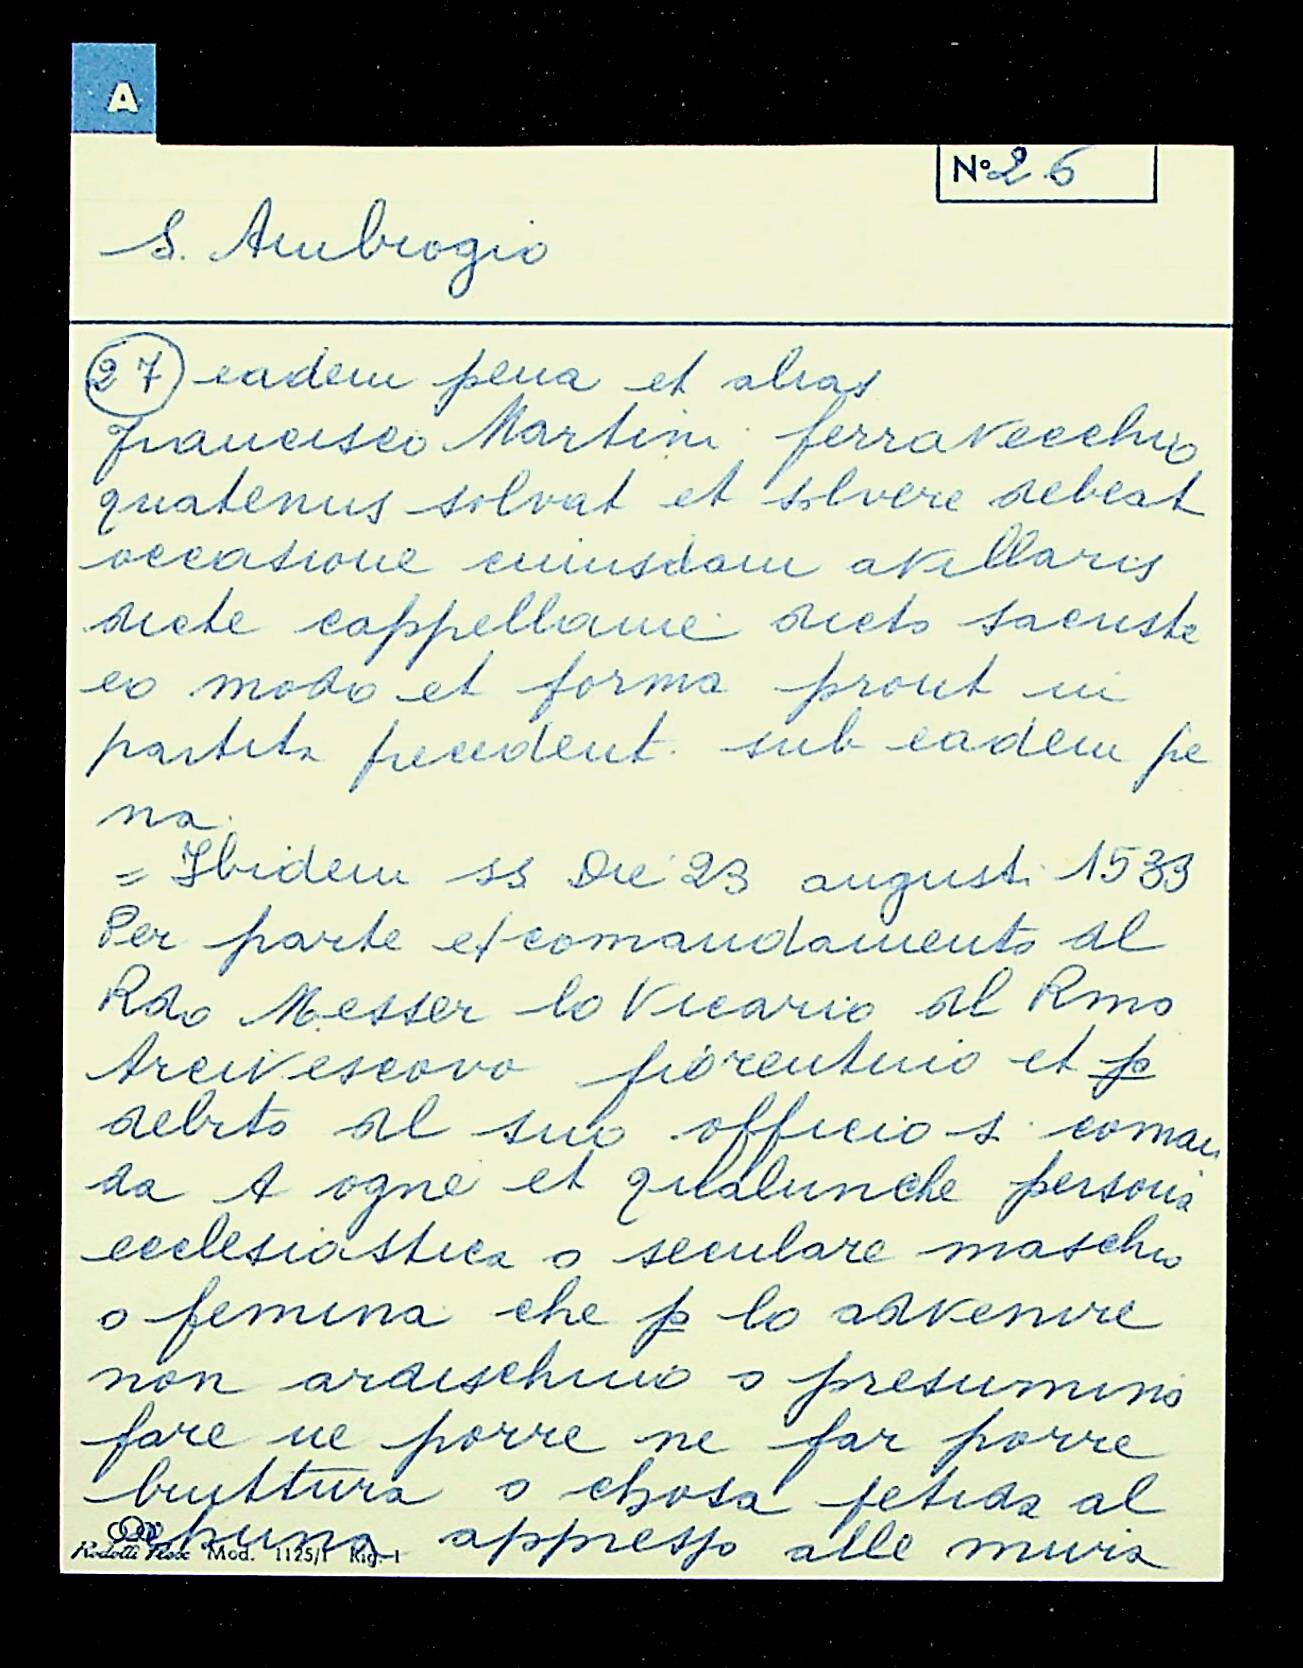 A
N° 26
S. Ambrogio
27 eadem pena et alias
francisco Martini ferravecchio
quatenus solvat et solvere debeat
occasione cuiusdam avillaris
dicte cappellanie dicto sacriste
eo modo et forma prout in
partita precedent. sub eadem pe
na.
= Ibidem ss Die 23 augusti 1533
Per parte et comandamento dl
Rdo Messer lo Vicario dl Rmo
Arcivescovo fiorentino et p
debito dl suo officio s. coman
da A ogne et qualunche persona
ecclesiastica o seculare maschio
o femina che p lo advenire
non ardischino o presumino
fare ne porre ne far porre
bruttura o chosa fetida al
chuna appresso alle mura
Mod. 1125/1 Rig. 1